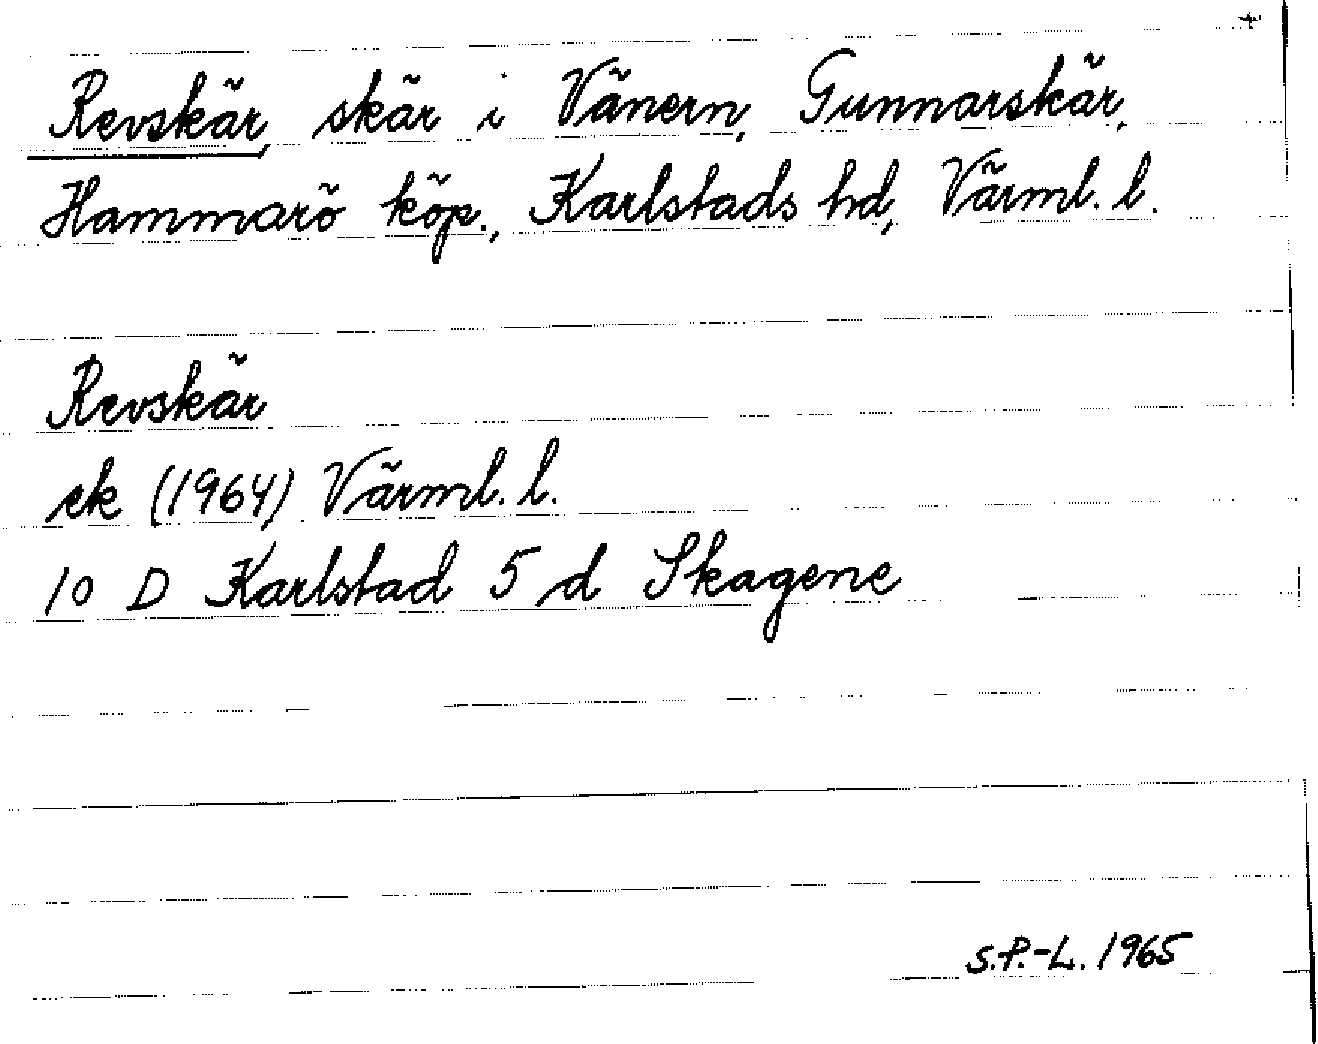 +
Revskär, skär i Vänern, Gunnarskär,
Hammarö köp., Karlstads hd, Värml. l.
Revskär
ek (1964) Värml. l.
10 D Karlstad 5 d Skagene
S.P.-L. 1965